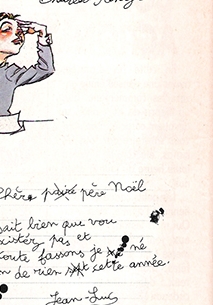 Chère père Noël
sait bien que vou
existez pas et
toute fassons je né
n de rien cette année.
Jean-Luc